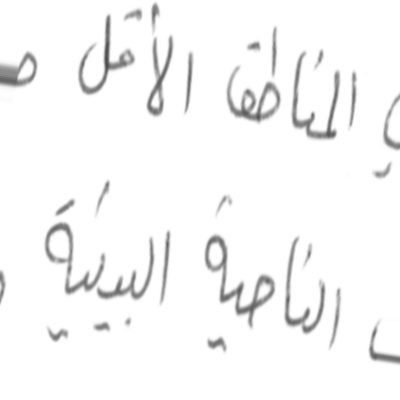 المناطق الأقل
الناحية البيئية